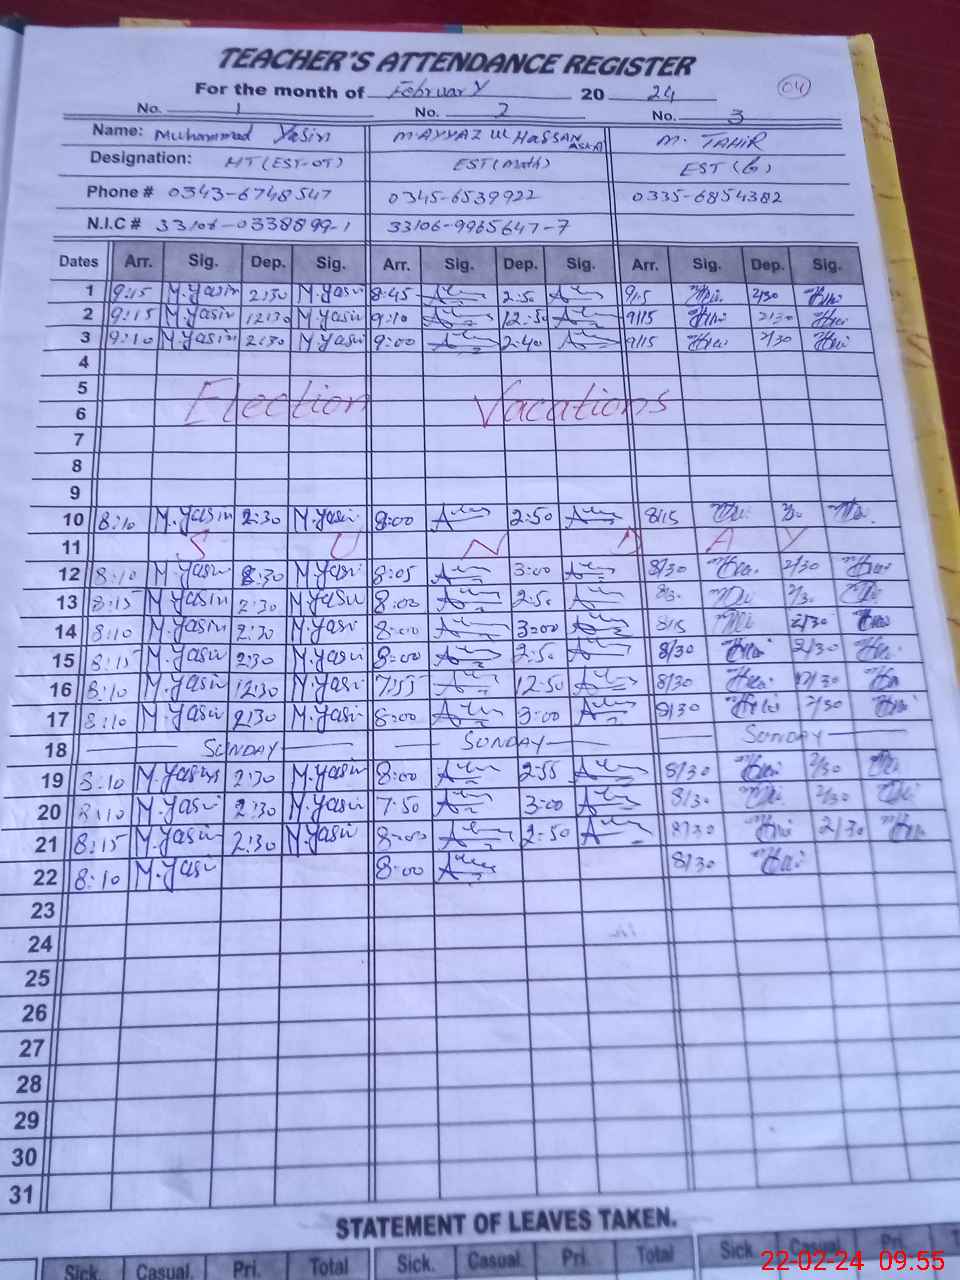 TEACHER'S ATTENDANCE REGISTER
For the month of February 20 24 04
No. 1 No. 2 No. 3
Name: Muhammad Yasin M. TAHIR
Designation: HT (EST-OT) EST (Math) EST (G)
Phone # 0343-6748547 0345-6539922 0335-6854382
N.I.C # 33106-0338899-1 33106-9965647-7
Dates Arr. Sig. Dep. Sig. Arr. Sig. Dep. Sig. Arr. Sig. Dep. Sig.
1 9:15 M.Yasin 2:30 M.Yasin 8:45 2:50 9/15 2/30
2 9:15 M.Yasin 12:30 M.Yasin 9:10 12:50 9/15
3 9:10 M.Yasin 2:30 M.Yasin 9:00 2:40 9/15 2/30
4
5
Election Vacations
6
7
8
9
10 8:10 M.Yasin 2:30 M.Yasin 8:00 2:50 8/15
11 S U N D A Y
12 8:10 M.Yasin 2:30 M.Yasin 8:05 3:00 8/30 2/30
13 8:15 M.Yasin 2:30 M.Yasin 8:00 2:50
14 8:10 M.Yasin 2:30 M.Yasin 8:00 3:00 8/15 2/30
15 8:15 M.Yasin 2:30 M.Yasin 8:00 2:50 8/30 2/30
16 8:10 M.Yasin 12:30 M.Yasin 7:55 12:50 8/30 12/30
17 8:10 M.Yasin 2:30 M.Yasin 8:00 3:00 8/30 2/30
18 SUNDAY SUNDAY SUNDAY
19 8:10 M.Yasin 2:30 M.Yasin 8:00 2:55 8/30 2/30
20 8:10 M.Yasin 2:30 M.Yasin 7:50 3:00 8/30 2/30
21 8:15 M.Yasin 2:30 M.Yasin 8:00 2:50 8/30 2/30
22 8:10 M.Yasin 8:00 8/30
23
24
25
26
27
28
29
30
31
STATEMENT OF LEAVES TAKEN.
Sick. Casual. Pri. Total Sick. Casual. Pri. Total Sick. Casual. Pri.
22-02-24 09.55